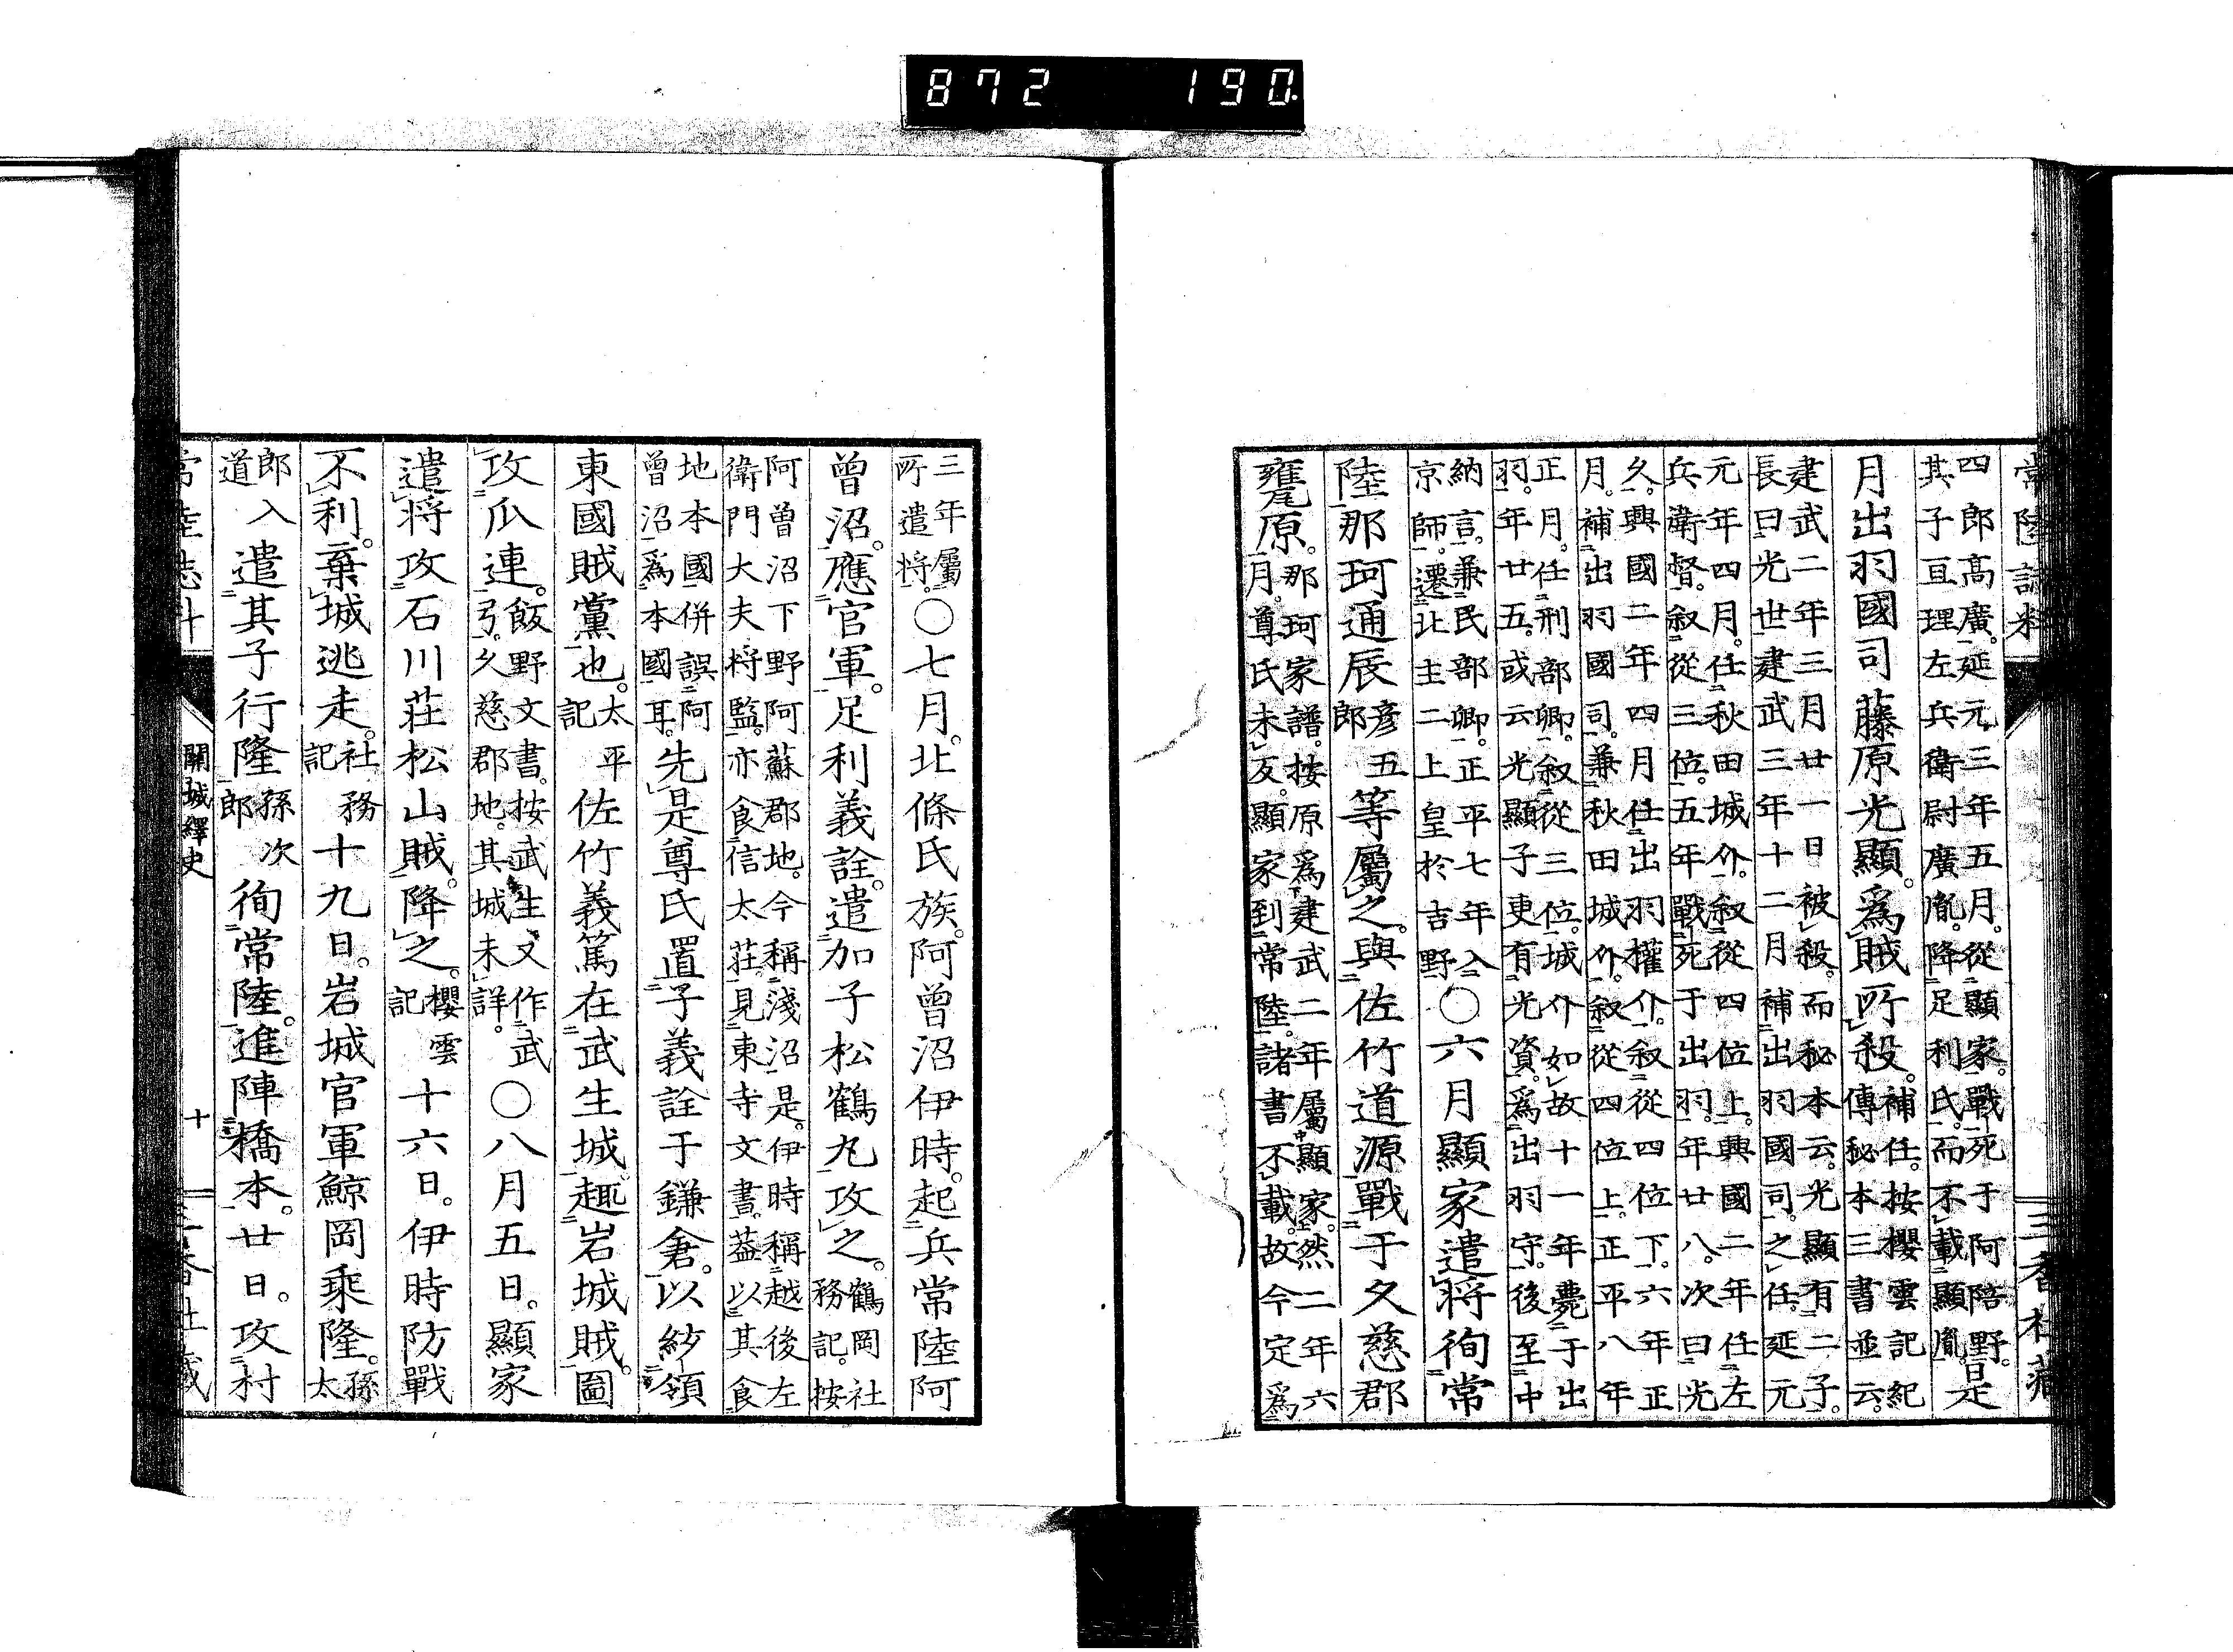 872 190.
常陸誌料
三香社藏
四郎高廣。延元三年五月。從顯家。戰死于阿陪野。是
其子亘理左兵衛尉廣胤。降足利氏。而不載顯胤。
月出羽國司藤原光顯。爲賊所殺。補任。按櫻雲記紀
傳秘本三書並云。
建武二年三月廿一日被殺。而秘本云。光顯有二子。
長曰光世建武三年十二月補出羽國司。之任。延元
元年四月。任秋田城介。叙從四位上。興國二年任左
兵衛督。叙從三位。五年戰死于出羽。年廿八。次曰光
久。興國二年四月任出羽權介。叙從四位下。六年正
月。補出羽國司。兼秋田城介。叙從四位上。正平八年
正月。任刑部卿。叙從三位。城介如故十一年薨于出
羽。年廿五。或云光顯子更有光資。爲出羽守。後至中
納言。兼民部卿。正平七年入
京師。遷北主二上皇於吉野。
〇六月顯家遣將徇常
陸那珂通辰彦五
郎等屬之。與佐竹道源戰于久慈郡
甕原。那珂家譜。按原爲建武二年屬顯家。然二年六
月。尊氏未反。顯家到常陸。諸書不載。故今定爲
三年屬
所遣將。〇七月。北條氏族。阿曾沼伊時。起兵常陸阿
曾沼。應官軍。足利義詮。遣加子松鶴丸攻之。鶴岡社
務記。按
阿曾沼下野阿蘇郡地。今稱淺沼是。伊時稱越後左
衛門大夫將監。亦食信太莊。見東寺文書。蓋以其食
地本國併誤阿
曾沼爲本國耳。先是尊氏置子義詮于鎌倉。以紗領
東國賊黨也。太平
記佐竹義篤在武生城。趣岩城賊。圖
攻瓜連。飯野文書。按武生。又作武
弓。久慈郡地。其城未詳。〇八月五日。顯家
遣將攻石川莊松山賊。降之。櫻雲
記十六日。伊時防戰
不利。棄城逃走。社務
記十九日。岩城官軍鯨岡乘隆。孫
太
郎入
道遣其子行隆孫次
郎徇常陸。進陣橋本。廿日。攻村
關城繹史
十